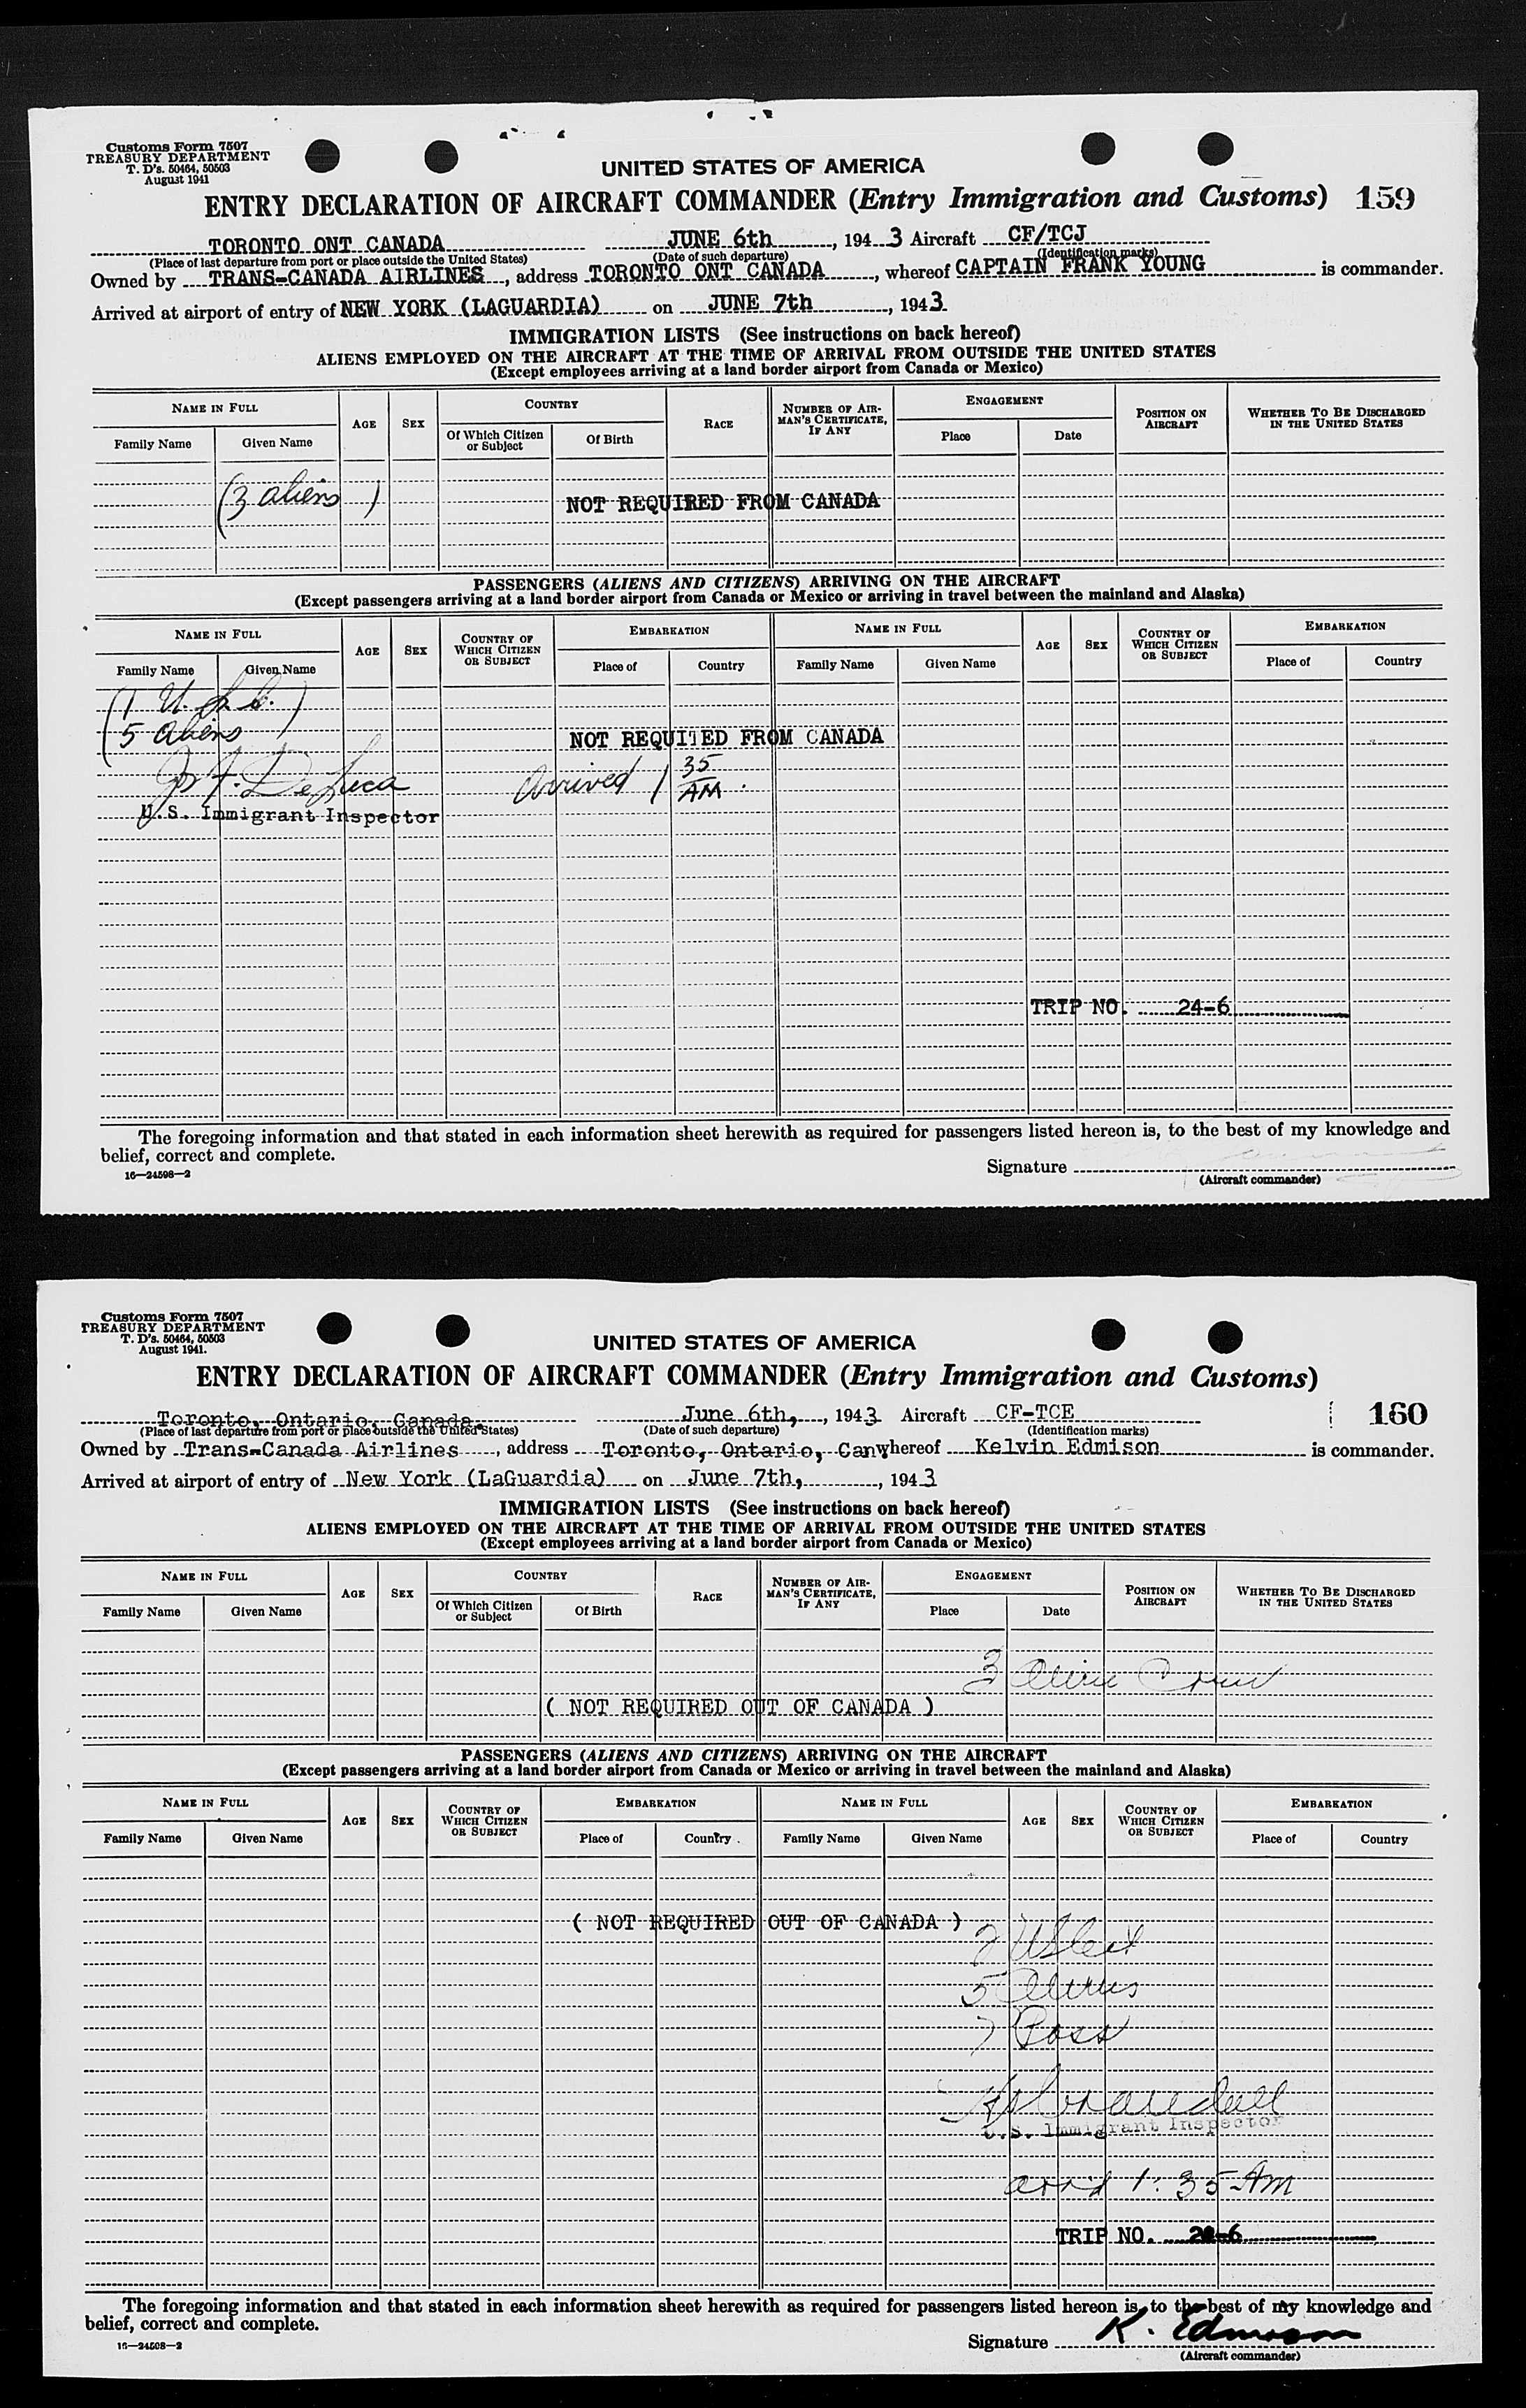 Customs Form 7507
TREASURY DEPARTMENT
T. D's. 50464, 50503
August 1941
UNITED STATES OF AMERICA
ENTRY DECLARATION OF AIRCRAFT COMMANDER (Entry Immigration and Customs) 159
TORONTO ONT CANADA JUNE 6th, 1943 Aircraft CF/TCJ
(Place of last departure from port or place outside the United States) (Date of such departure) (Identification marks)
Owned by TRANS-CANADA AIRLINES, address TORONTO ONT CANADA, whereof CAPTAIN FRANK YOUNG is commander.
Arrived at airport of entry of NEW YORK (LAGUARDIA) on JUNE 7th, 1943
IMMIGRATION LISTS (See instructions on back hereof)
ALIENS EMPLOYED ON THE AIRCRAFT AT THE TIME OF ARRIVAL FROM OUTSIDE THE UNITED STATES
(Except employees arriving at a land border airport from Canada or Mexico)
NAME IN FULL AGE SEX COUNTRY RACE NUMBER OF AIRMAN'S CERTIFICATE, IF ANY ENGAGEMENT POSITION ON AIRCRAFT WHETHER TO BE DISCHARGED IN THE UNITED STATES
Family Name Given Name Of Which Citizen or Subject Of Birth Place Date
(3 aliens)
NOT REQUIRED FROM CANADA
PASSENGERS (ALIENS AND CITIZENS) ARRIVING ON THE AIRCRAFT
(Except passengers arriving at a land border airport from Canada or Mexico or arriving in travel between the mainland and Alaska)
NAME IN FULL AGE SEX COUNTRY OF WHICH CITIZEN OR SUBJECT EMBARKATION NAME IN FULL AGE SEX COUNTRY OF WHICH CITIZEN OR SUBJECT EMBARKATION
Family Name Given Name Place of Country Family Name Given Name Place of Country
(1 U.S.C.)
(5 aliens
NOT REQUIRED FROM CANADA
DeLuca Arrived 1 35 AM.
U.S. Immigrant Inspector
TRIP NO. 24-6
The foregoing information and that stated in each information sheet herewith as required for passengers listed hereon is, to the best of my knowledge and
belief, correct and complete.
16—24598—2
Signature
(Aircraft commander)
Customs Form 7507
TREASURY DEPARTMENT
T. D's. 50464, 50503
August 1941.
UNITED STATES OF AMERICA
ENTRY DECLARATION OF AIRCRAFT COMMANDER (Entry Immigration and Customs)
Toronto, Ontario, Canada. June 6th, 1943 Aircraft CF-TCE 160
(Place of last departure from port or place outside the United States) (Date of such departure) (Identification marks)
Owned by Trans-Canada Airlines, address Toronto, Ontario, Can, whereof Kelvin Edmison is commander.
Arrived at airport of entry of New York (LaGuardia) on June 7th, 1943
IMMIGRATION LISTS (See instructions on back hereof)
ALIENS EMPLOYED ON THE AIRCRAFT AT THE TIME OF ARRIVAL FROM OUTSIDE THE UNITED STATES
(Except employees arriving at a land border airport from Canada or Mexico)
NAME IN FULL AGE SEX COUNTRY RACE NUMBER OF AIRMAN'S CERTIFICATE, IF ANY ENGAGEMENT POSITION ON AIRCRAFT WHETHER TO BE DISCHARGED IN THE UNITED STATES
Family Name Given Name Of Which Citizen or Subject Of Birth Place Date
3 Alien Crew
( NOT REQUIRED OUT OF CANADA )
PASSENGERS (ALIENS AND CITIZENS) ARRIVING ON THE AIRCRAFT
(Except passengers arriving at a land border airport from Canada or Mexico or arriving in travel between the mainland and Alaska)
NAME IN FULL AGE SEX COUNTRY OF WHICH CITIZEN OR SUBJECT EMBARKATION NAME IN FULL AGE SEX COUNTRY OF WHICH CITIZEN OR SUBJECT EMBARKATION
Family Name Given Name Place of Country Family Name Given Name Place of Country
( NOT REQUIRED OUT OF CANADA )
2 US Cit
5 Aliens
7 Pass
Crandall
U.S. Immigrant Inspector
arr'd 1:35 AM
TRIP NO. -6
The foregoing information and that stated in each information sheet herewith as required for passengers listed hereon is, to the best of my knowledge and
belief, correct and complete.
16—24598—2
Signature K. Edmison
(Aircraft commander)